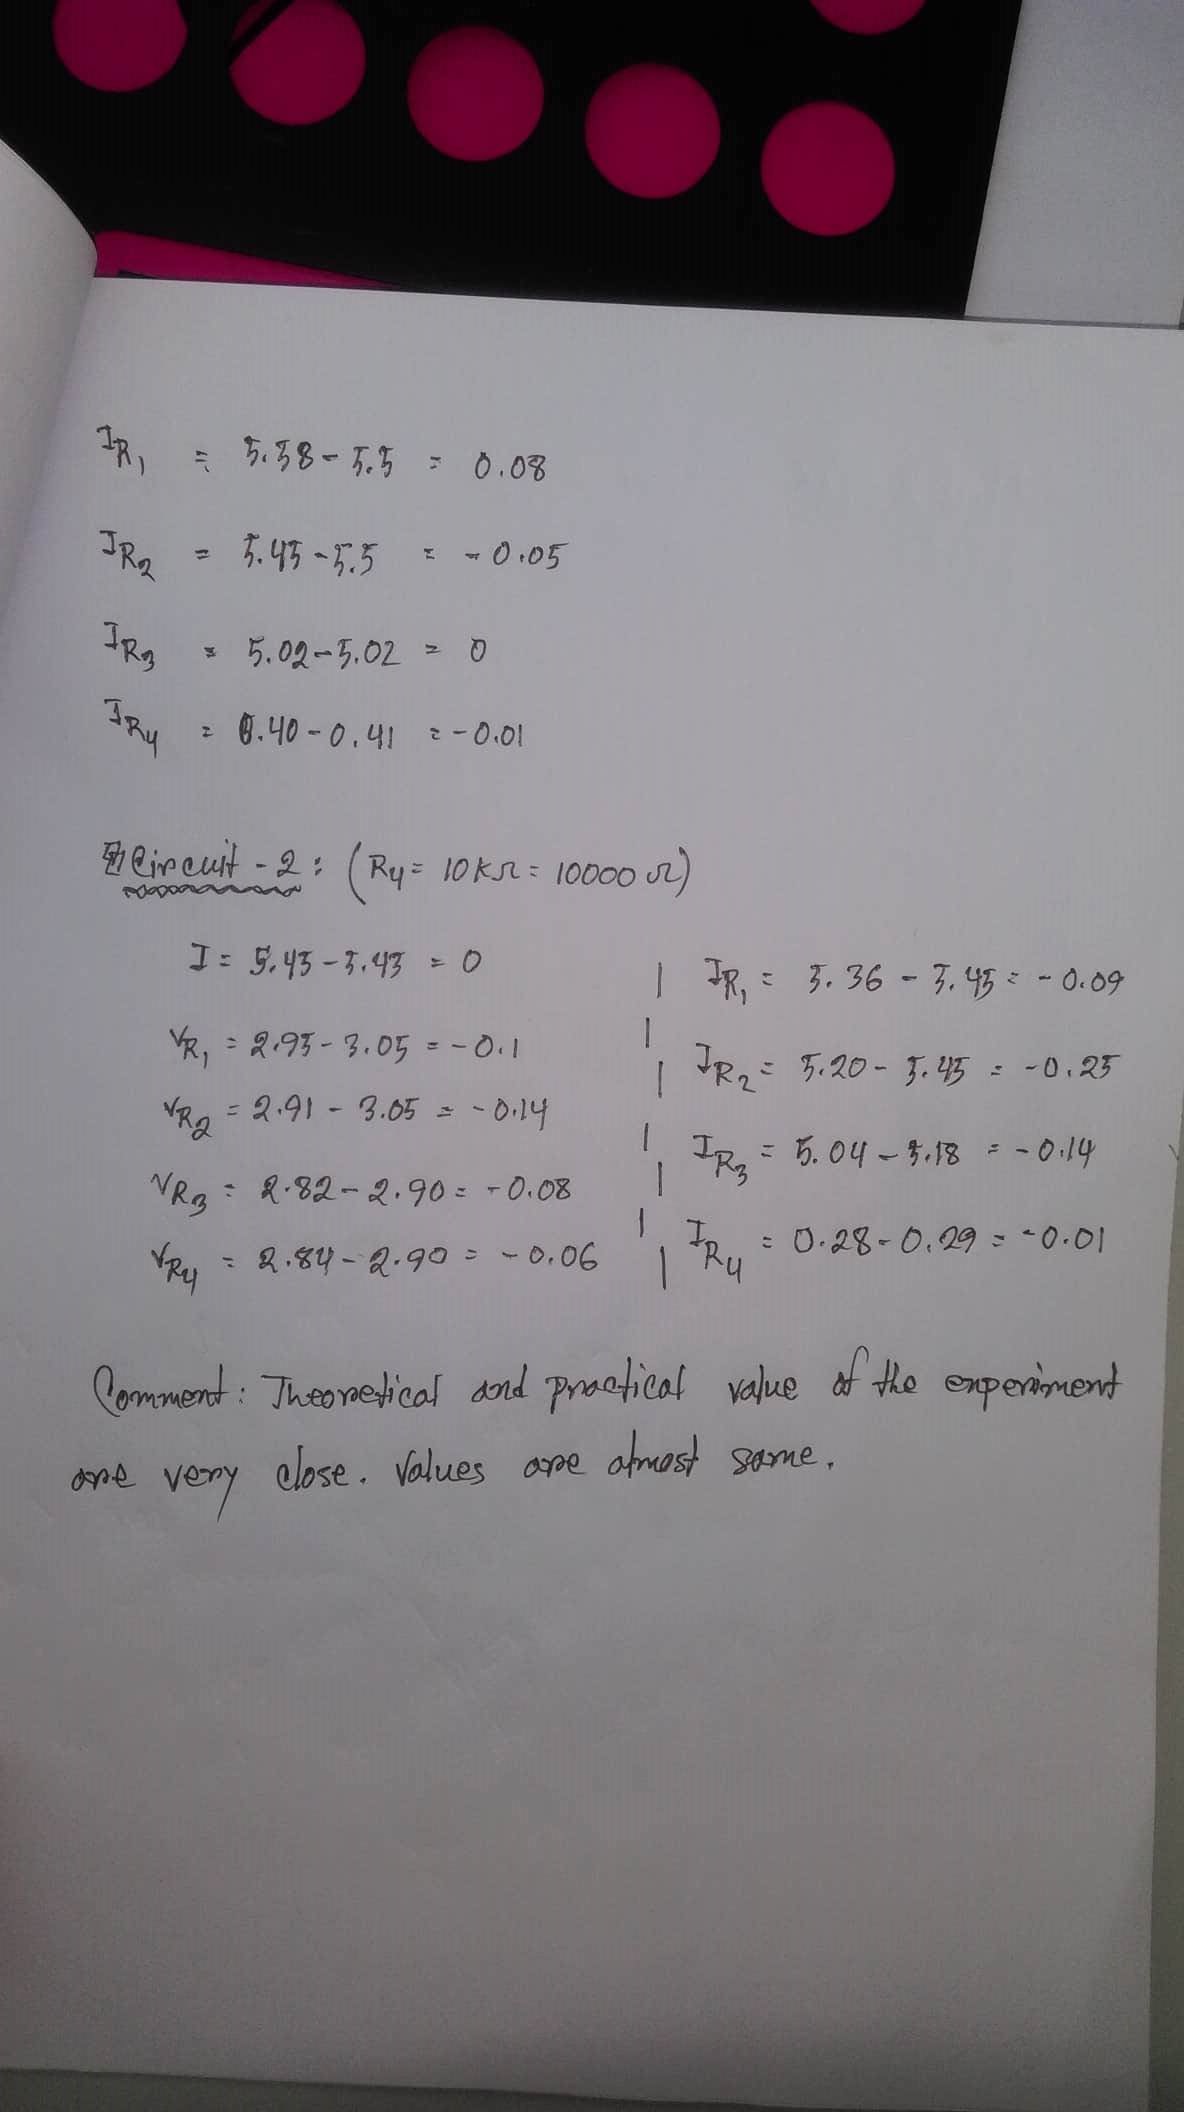 IR1 = 5.58 - 5.5 = 0.08
IR2 = 5.45 - 5.5 = -0.05
IR3 = 5.02 - 5.02 = 0
IR4 = 0.40 - 0.41 = -0.01
Circuit - 2 : (R4 = 10KΩ = 10000 Ω)
I = 5.45 - 5.45 = 0
VR1 = 2.95 - 3.05 = -0.1
VR2 = 2.91 - 3.05 = -0.14
VR3 = 2.82 - 2.90 = -0.08
VR4 = 2.84 - 2.90 = -0.06
IR1 = 5.36 - 5.45 = -0.09
IR2 = 5.20 - 5.45 = -0.25
IR3 = 5.04 - 5.18 = -0.14
IR4 = 0.28 - 0.29 = -0.01
Comment: Theoretical and practical value of the experiment
are very close. Values are almost same.